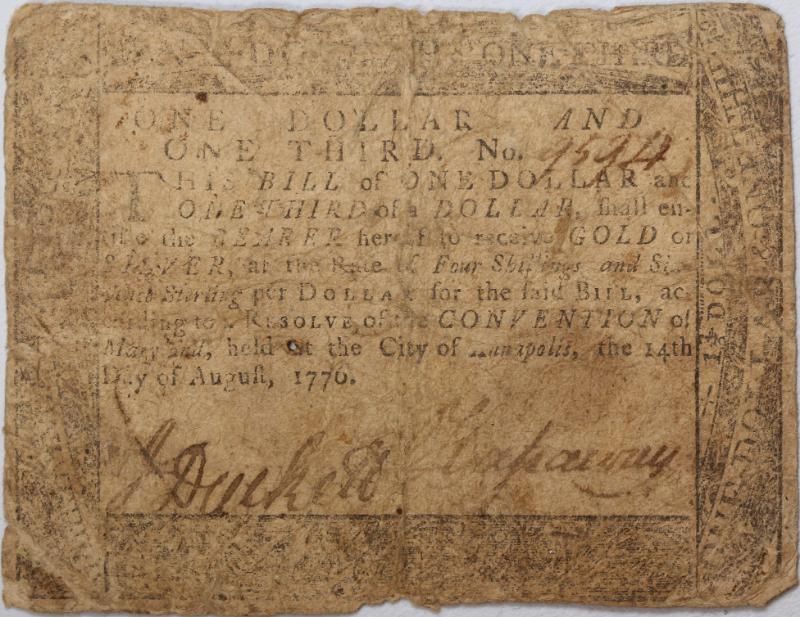 ONE THIRD
ONE DOLLAR AND
ONE THIRD. No. 9594
THIS BILL of ONE DOLLAR and
ONE THIRD of a DOLLAR, ſhall en-
title the BEARER hereof to receive GOLD or
SILVER, at the Rate of Four Shillings and Six-
Pence Sterling per DOLLAR for the ſaid BILL, ac-
cording to a RESOLVE of the CONVENTION of
Maryland, held at the City of Annapolis, the 14th
Day of Auguſt, 1776.
J Duckett